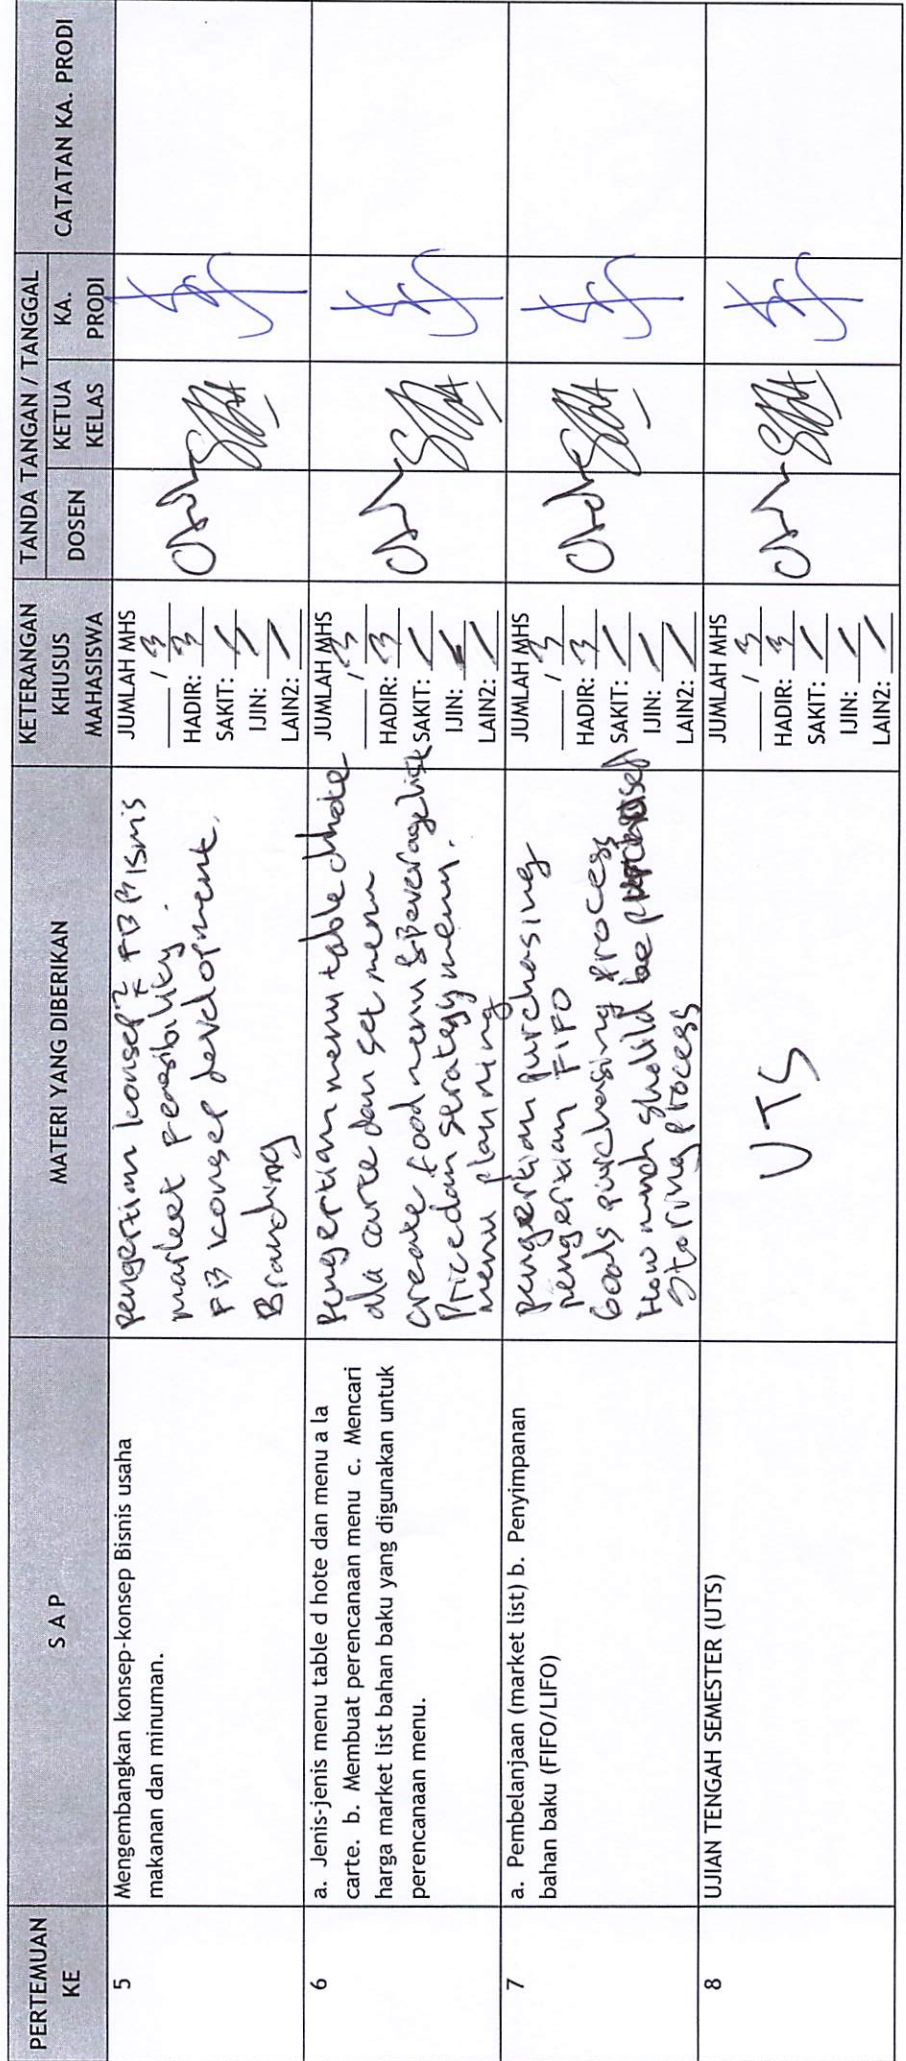 PERTEMUAN KE
S A P
MATERI YANG DIBERIKAN
KETERANGAN KHUSUS MAHASISWA
TANDA TANGAN / TANGGAL
DOSEN
KETUA KELAS
KA. PRODI
CATATAN KA. PRODI
5
Mengembangkan konsep-konsep Bisnis usaha
makanan dan minuman.
pengertian konsep2 FB Bisnis
market Feasibility.
FB Konsep development.
Branding
JUMLAH MHS
/ 3
HADIR: 3
SAKIT: /
IJIN: /
LAIN2: /
6
a. Jenis-jenis menu table d hote dan menu a la
carte. b. Membuat perencanaan menu c. Mencari
harga market list bahan baku yang digunakan untuk
perencanaan menu.
Pengertian menu table dhote
ala carte dan set menu
create food menu & Beverage list
Price dan strategy menu.
menu planning
JUMLAH MHS
/ 3
HADIR: 3
SAKIT: /
IJIN: /
LAIN2: /
7
a. Pembelanjaan (market list) b. Penyimpanan
bahan baku (FIFO/LIFO)
pengertian purchasing
pengertian FIFO
Goods purchasing process
How much should be
Storing process
JUMLAH MHS
/ 3
HADIR: 3
SAKIT: /
IJIN: /
LAIN2: /
8
UJIAN TENGAH SEMESTER (UTS)
UTS
JUMLAH MHS
/ 3
HADIR: 3
SAKIT: /
IJIN: /
LAIN2: /